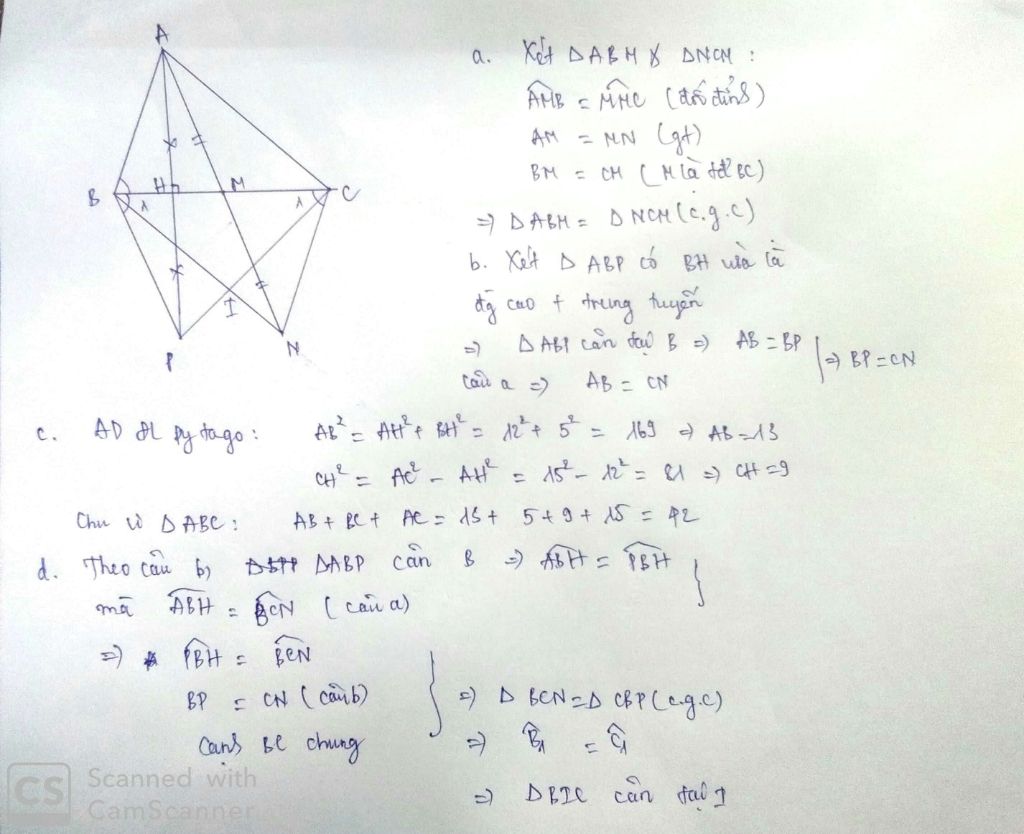 A
B
H
M
C
1
1
I
P
N
a. Xét ΔABM & ΔNCM :
AMB = NMC (đối đỉnh)
AM = MN (gt)
BM = CM (M là tđ BC)
=> ΔABM = ΔNCM (c.g.c)
b. Xét Δ ABP có BH vừa là
đg cao + trung tuyến
=> ΔABP cân tại B => AB = BP
câu a => AB = CN
=> BP = CN
c. AD ĐL Pytago : AB² = AH² + BH² = 12² + 5² = 169 => AB = 13
CH² = AC² - AH² = 15² - 12² = 81 => CH = 9
Chu vi ΔABC : AB + BC + AC = 13 + 5 + 9 + 15 = 42
d. Theo câu b) ΔABP cân B => ABH = PBH
mà ABH = BCN (câu a)
=> PBH = BCN
BP = CN (câu b)
Cạnh BC chung
=> Δ BCN = Δ CBP (c.g.c)
=> B₁ = C₁
=> ΔBIC cân tại I
CS Scanned with
CamScanner